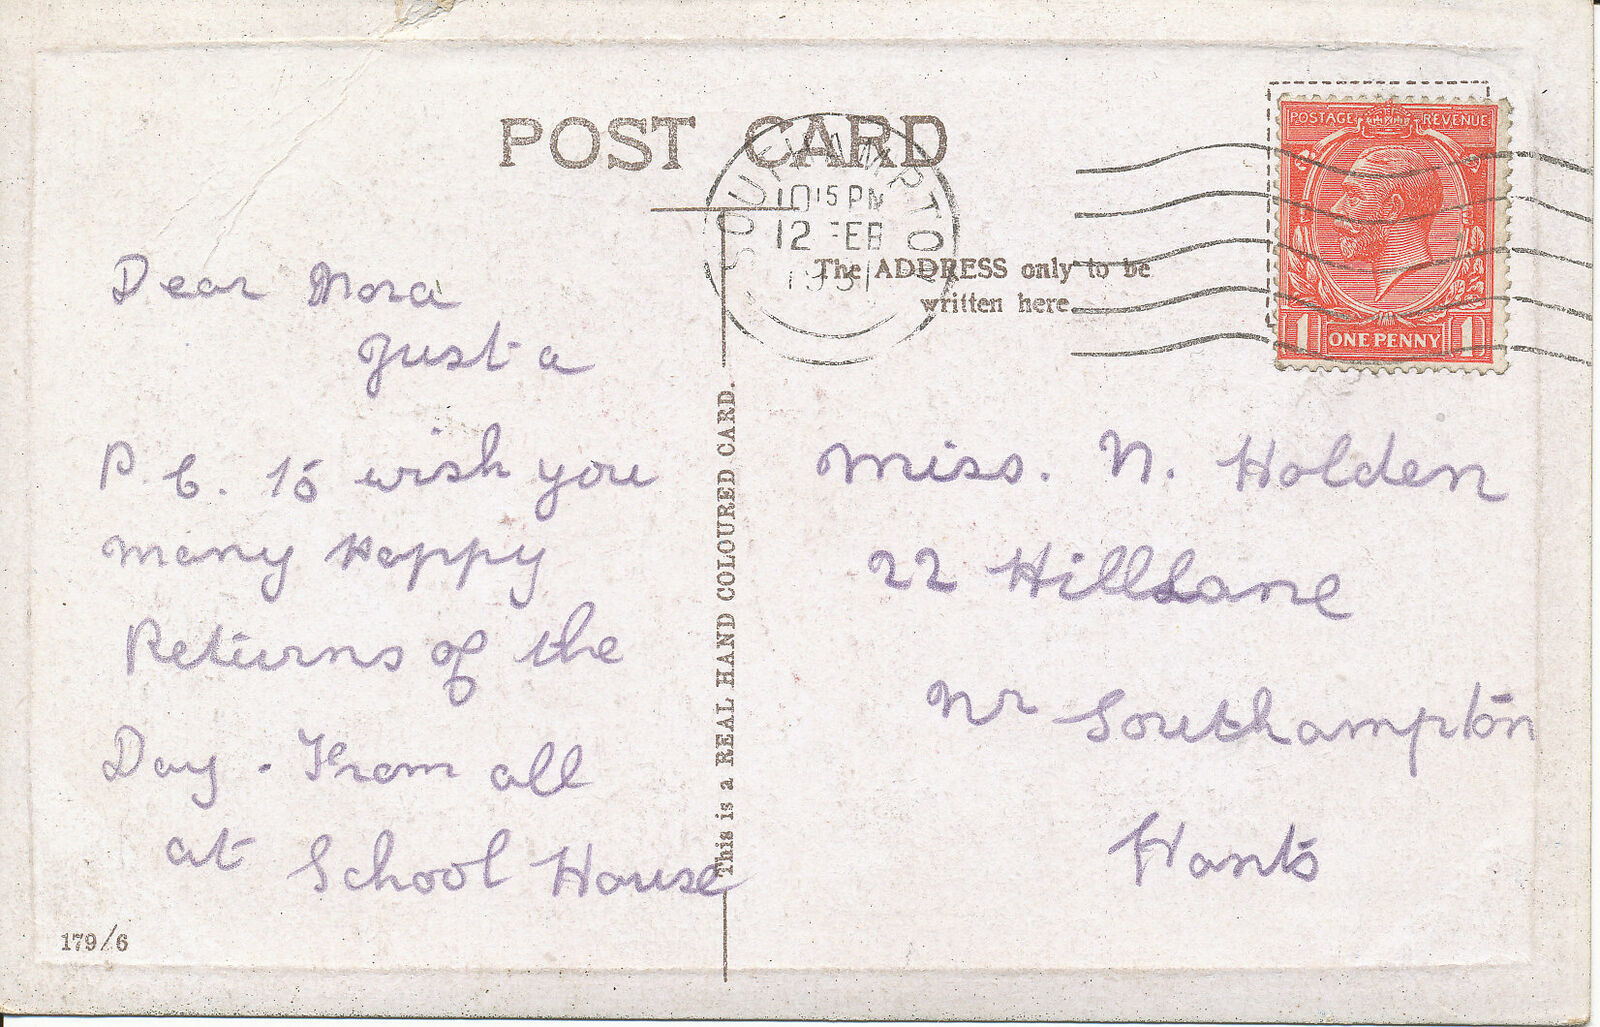 POST CARD
SOUTHAMPTON
10 15 PM
12 FEB
1931
POSTAGE REVENUE
1 ONE PENNY 1
The ADDRESS only to be
written here.
Dear Nora
Just a
P.C. to wish you
many Happy
Returns of the
Day. From all
at School House
This is a REAL HAND COLOURED CARD.
Miss. N. Holden
22 Hill Lane
Nr Southampton
Hants
179/6